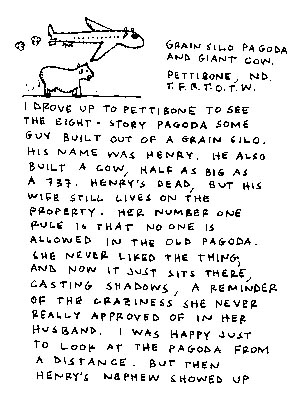 GRAIN SILO PAGODA
AND GIANT COW.
PETTIBONE, ND.
T.F.R.T.O.T.W.
I DROVE UP TO PETTIBONE TO SEE
THE EIGHT-STORY PAGODA SOME
GUY BUILT OUT OF A GRAIN SILO.
HIS NAME WAS HENRY. HE ALSO
BUILT A COW, HALF AS BIG AS
A 737. HENRY'S DEAD, BUT HIS
WIFE STILL LIVES ON THE
PROPERTY. HER NUMBER ONE
RULE IS THAT NO ONE IS
ALLOWED IN THE OLD PAGODA.
SHE NEVER LIKED THE THING,
AND NOW IT JUST SITS THERE,
CASTING SHADOWS, A REMINDER
OF THE CRAZINESS SHE NEVER
REALLY APPROVED OF IN HER
HUSBAND. I WAS HAPPY JUST
TO LOOK AT THE PAGODA FROM
A DISTANCE. BUT THEN
HENRY'S NEPHEW SHOWED UP